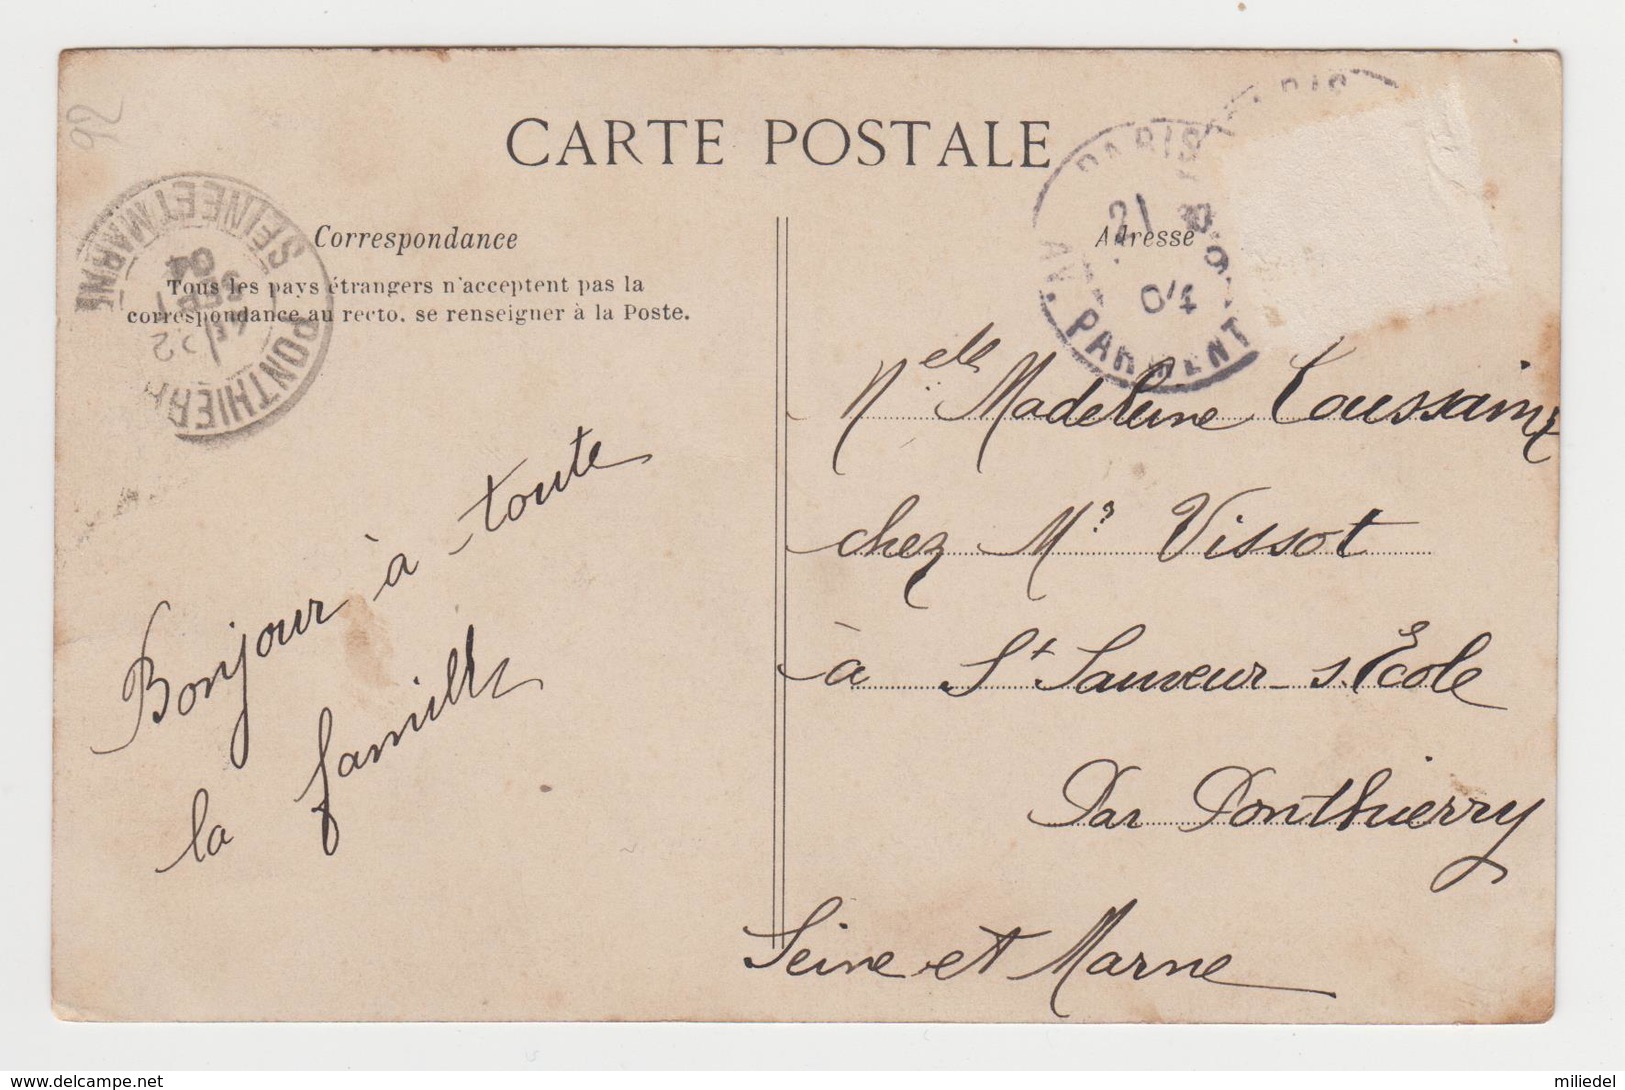 92
CARTE POSTALE
Correspondance
Tous les pays étrangers n'acceptent pas la
correspondance au recto. se renseigner à la Poste.
Adresse
PARIS
21
04
AV. PARMENT
PONTHIERR
SEINE ET MARNE
SEPT
04
Bonjour à toute
la famille
Melle Madeleine Toussaint
chez Mr Vissot
à St Sauveur s. Ecole
Par Ponthierry
Seine et Marne
delcampe.net
miliedel